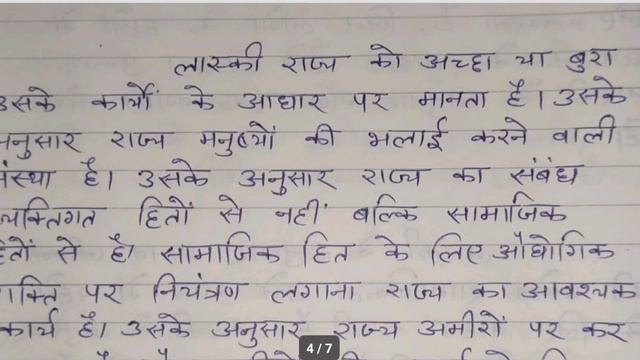 लास्की राज्य को अच्छा या बुरा
उसके कार्यों के आधार पर मानता है। उसके
अनुसार राज्य मनुष्यों की भलाई करने वाली
संस्था है। उसके अनुसार राज्य का संबंध
व्यक्तिगत हितों से नहीं बल्कि सामाजिक
हितों से है। सामाजिक हित के लिए औद्योगिक
शक्ति पर नियंत्रण लगाना राज्य का आवश्यक
कार्य है। उसके अनुसार राज्य अमीरों पर कर
4/7